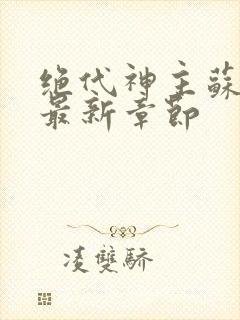 绝代神主蘇
最新章節
凌雙驕